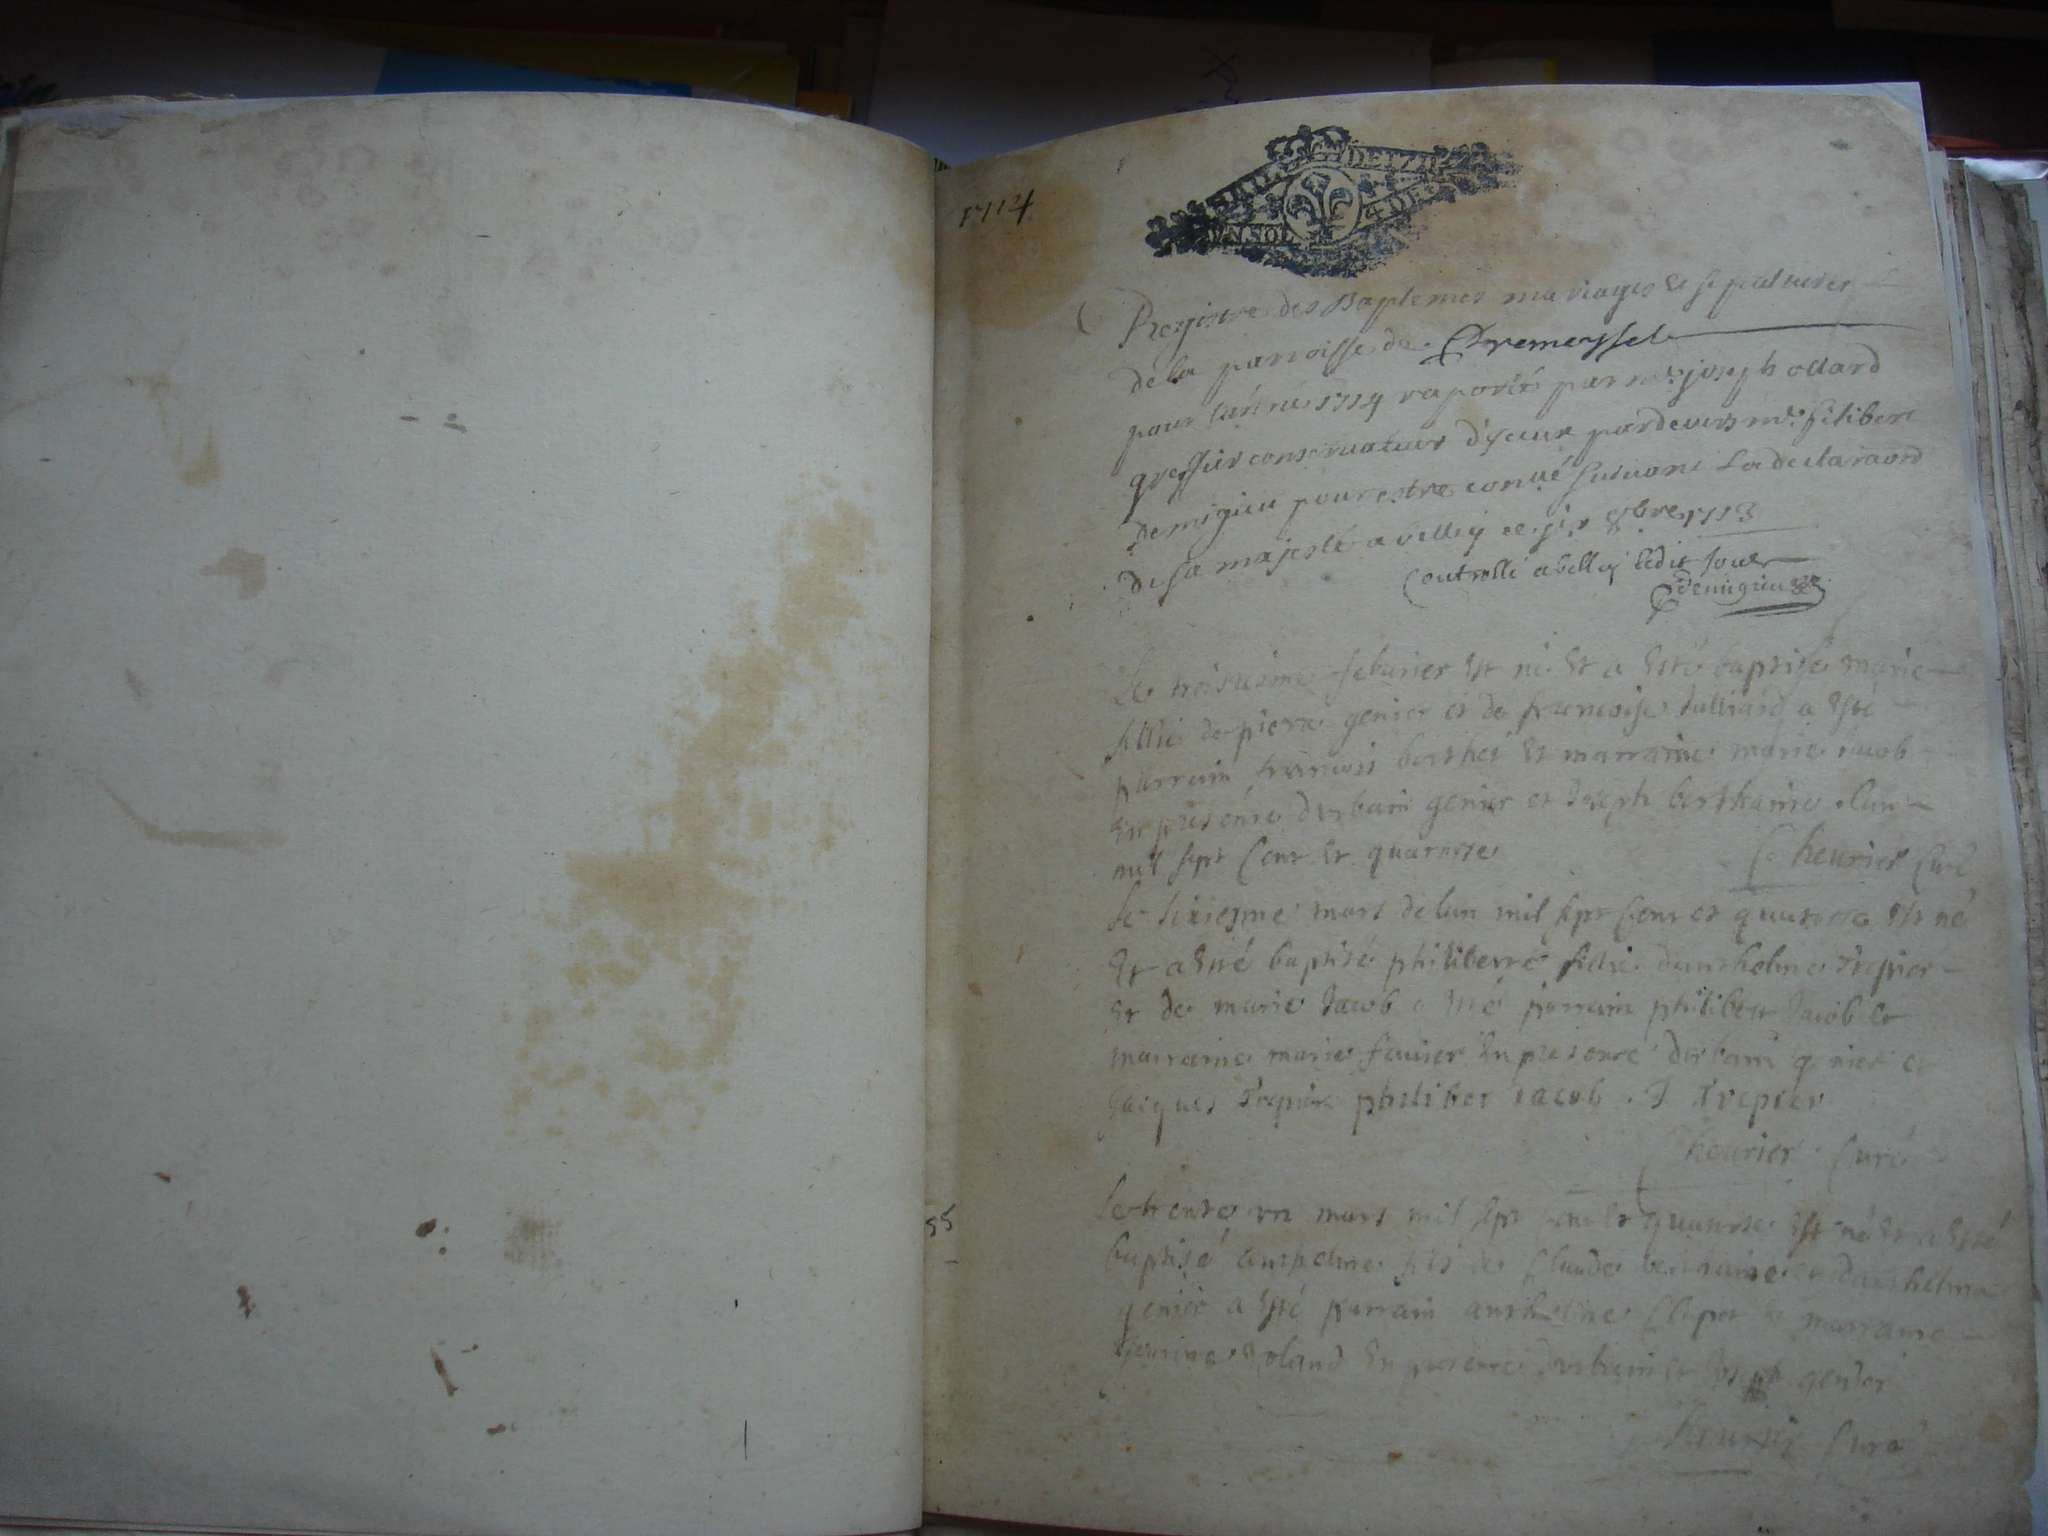 1714
UN SOL
4 DE
Registre des Baptemes mariages & sepultures
de la parroisse de Premeyssel
pour l'année 1714 raporté par me. joseph ollard
greffier conservateur d'yceux pardevers me. filibert
demigieu pour estre conué suivant la declaraon
de sa majesté a belley ce six 8bre 1713
Controllé a belley ledit jour
Demigieu
Le troisiesme febvrier Est né Et a Esté baptisé marie
fillie de piere genier et de francoise Julliard a Esté
parrain francois berthet Et marraine marie iacob
En presence durbain genier et Joseph berthaine. lan
mil sept Cent Et quatorze
Cheurier Curé
Le sixiesme mars de lan mil sept Cent et quatorze Est né
Et a Esté baptisé philiberte fillie danthelme Trepier
Et de marie Jacob a Esté parrain philibert Jacob et
marraine marie favier En presence durbain genier et
Jacques Trepier philiber iacob. J Trepier
Cheurier Curé
55
Le trente vn mars mil sept Cent Et quatorze Est né Et a Esté
baptisé anthelme fils de Claude berthaine et danthelma
genier a Esté parrain anthelme Clupet Et marraine
Roland En presence durbain et Joseph genier
Cheurier Curé